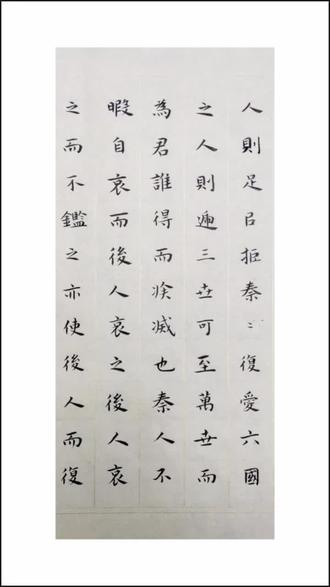 人則足㠯拒秦〻復愛六國
之人則遞三世可至萬世而
為君誰得而族滅也秦人不
暇自哀而後人哀之後人哀
之而不鑑之亦使後人而復